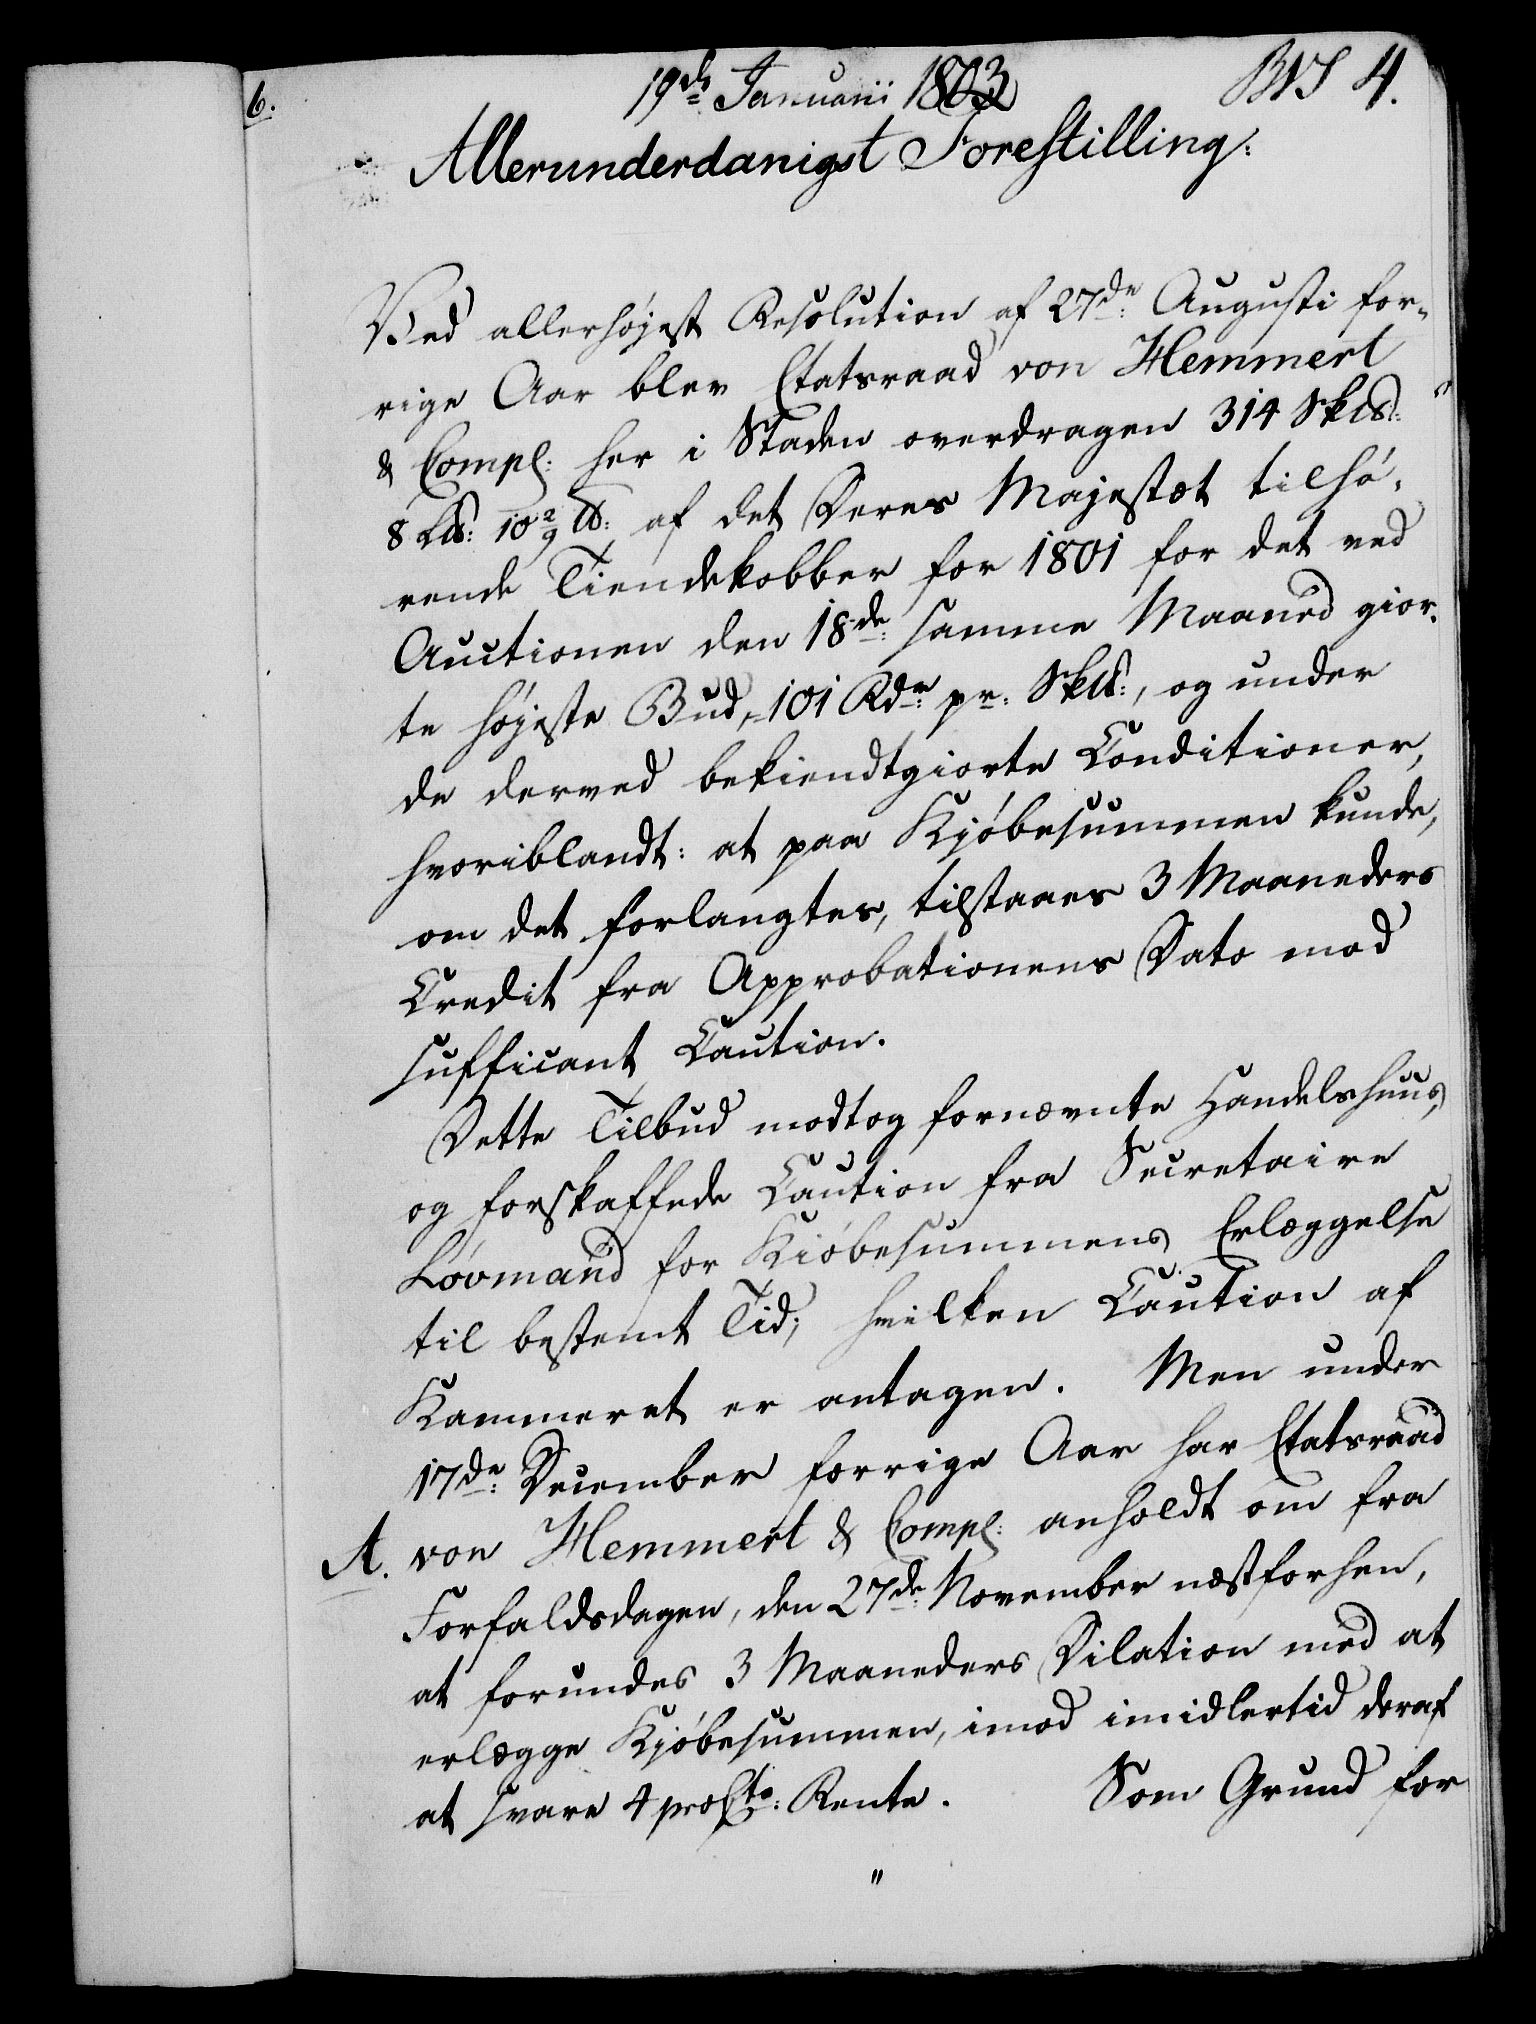 6.
19de Januarii 1803
4.
Allerunderdanigst Forestilling:
Ved allerhøjest Resolution af 27de: Augusti for-
rige Aar blev Etatsraad von Hemmert
& Comp: her i Staden overdragen 314 Sk℔:
8 L℔: 10 2/9 ℔: af det Deres Majestæt tilhø-
rende Tiendekobber for 1801 for det ved
Auctionen den 18de: samme Maaned gior-
te højeste Bud, 101 Rdr: pr: Sk℔:, og under
de derved bekiendtgiorte Conditioner,
hvoriblandt: at paa Kjøbesummen kunde,
om det forlangtes, tilstaaes 3 Maaneders
Credit fra Approbationens Dato mod
sufficant Caution.
Dette Tilbud modtog fornævnte Handelshuus,
og forskaffede Caution fra Secretaire
Løvmand for Kiøbesummens Erlæggelse
til bestemt Tid; hvilken Caution af
Kammeret er antagen. Men under
17de: December forrige Aar har Etatsraad
A. von Hemmert & Comp: anholdt om fra
Forfaldsdagen, den 27de: November næstforhen,
at forundes 3 Maaneders Dilation med at
erlægge Kjøbesummen, imod imidlertid deraf
at svare 4 proCto: Rente. Som Grund for
"